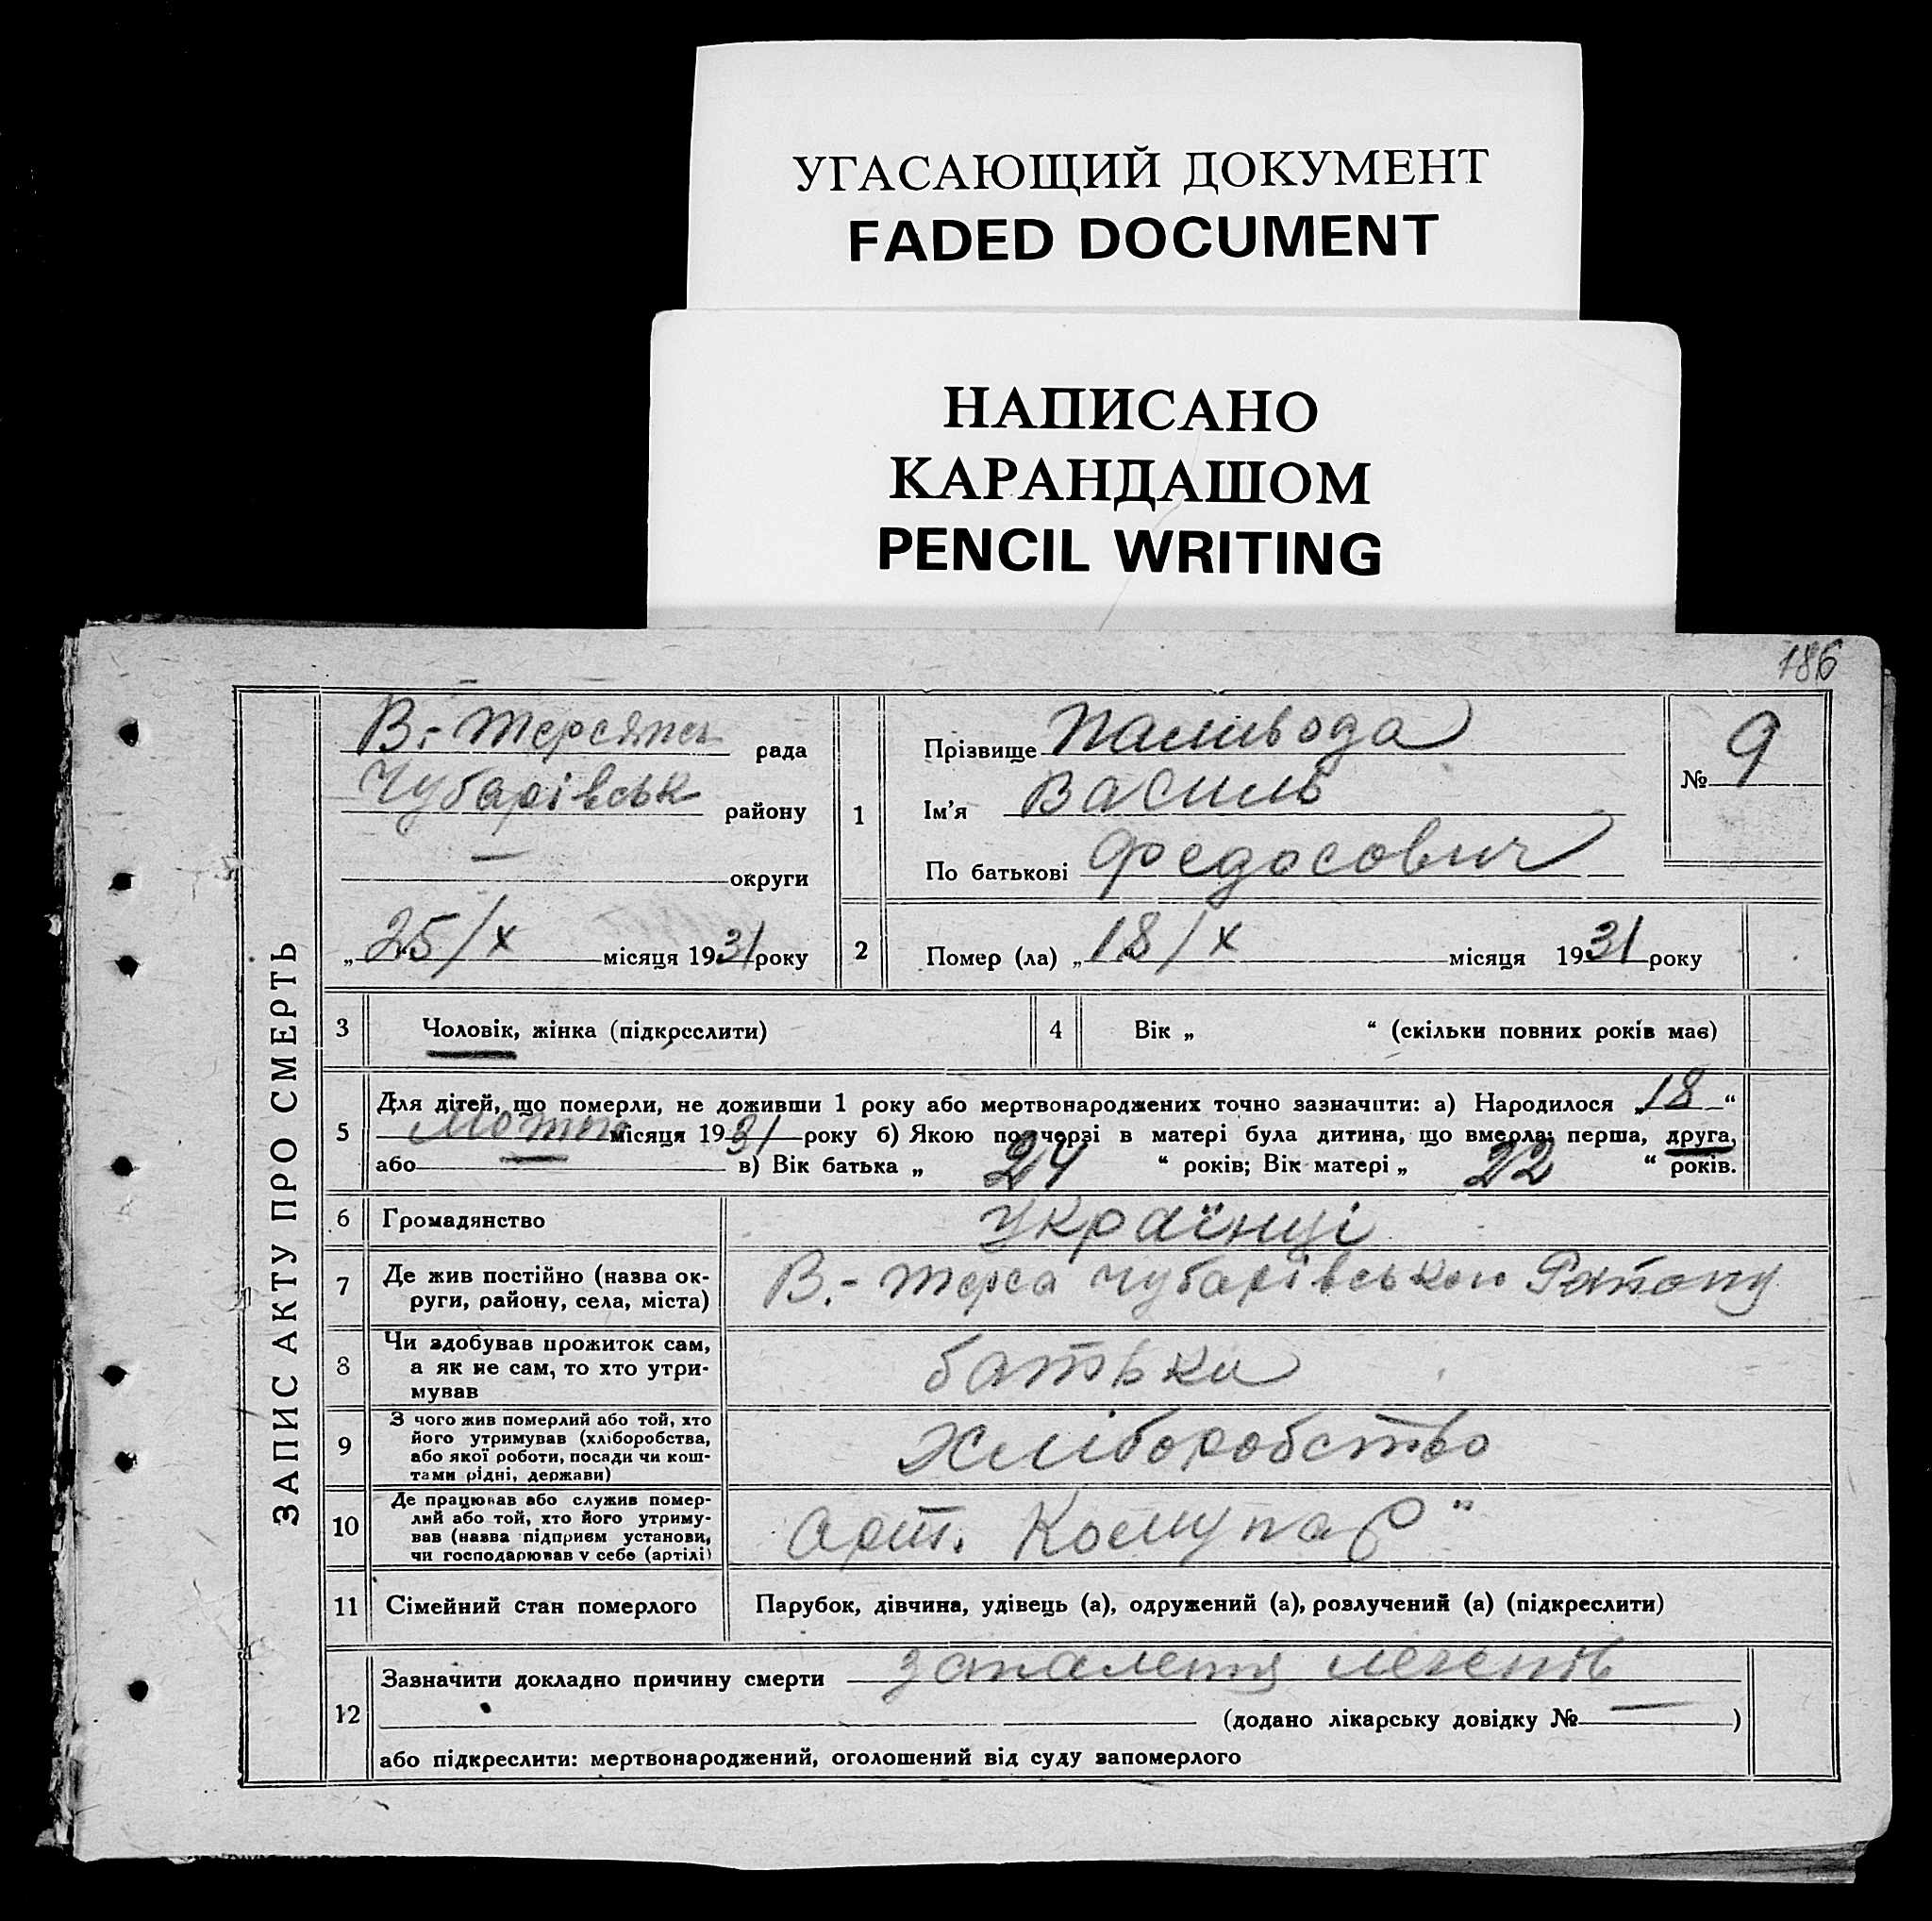 УГАСАЮЩИЙ ДОКУМЕНТ
FADED DOCUMENT
НАПИСАНО
КАРАНДАШОМ
PENCIL WRITING
186
ЗАПИС АКТУ ПРО СМЕРТЬ
В.-Терсянськ рада
Чубарівськ району
— округи
„ 25/х місяця 1931 року
1
Прізвище Паливода
Ім'я Василь
По батькові Федосович
№ 9
2 Помер (ла) „ 18/х місяця 1931 року
3 Чоловік, жінка (підкреслити)
4 Вік „ “ (скільки повних років має)
5 Для дітей, що померли, не доживши 1 року або мертвонароджених точно зазначити: а) Народилося „ 18 “
місяця 1931 року б) Якою по черзі в матері була дитина, що вмерла: перша, друга,
або — в) Вік батька „ 24 “ років; Вік матері „ 22 “ років.
6 Громадянство українці
7 Де жив постійно (назва ок-
руги, району, села, міста) В.-Терса Чубарівського Району
8 Чи здобував прожиток сам,
а як не сам, то хто утри-
мував батьки
9 З чого жив померлий або той, хто
його утримував (хліборобства,
або якої роботи, посади чи кош-
тами рідні, держави) Хліборобство
10 Де працював або служив помер-
лий або той, хто його утриму-
вав (назва підприєм установи,
чи господарював у себе (артілі) арт. Комунар"
11 Сімейний стан померлого Парубок, дівчина, удівець (а), одружений (а), розлучений (а) (підкреслити)
12 Зазначити докладно причину смерти запалення легенів
(додано лікарську довідку № — )
або підкреслити: мертвонароджений, оголошений від суду запомерлого